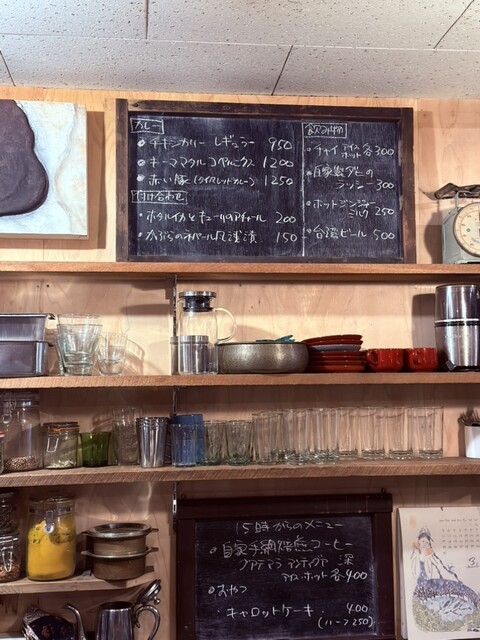 カレー
・チキンカリー レギュラー 950
・キーママタル コペルニクス 1200
・赤い豚(タイスレッドカレー) 1250
付け合わせ
・ホタルイカとキュールのアチャール 200
・かぶらのネパール風浅漬 150
飲み物
・チャイ アイス ホット 各300
・自家製ダヒの
ラッシー 300
・ホットジンジャー
ミルク 250
・台湾ビール 500
15時からのメニュー
・自家手網焙煎コーヒー
グアテマラ アンティグア 深
アイス・ホット 各400
・おやつ
・キャロットケーキ. 400
(ハーフ250)
3